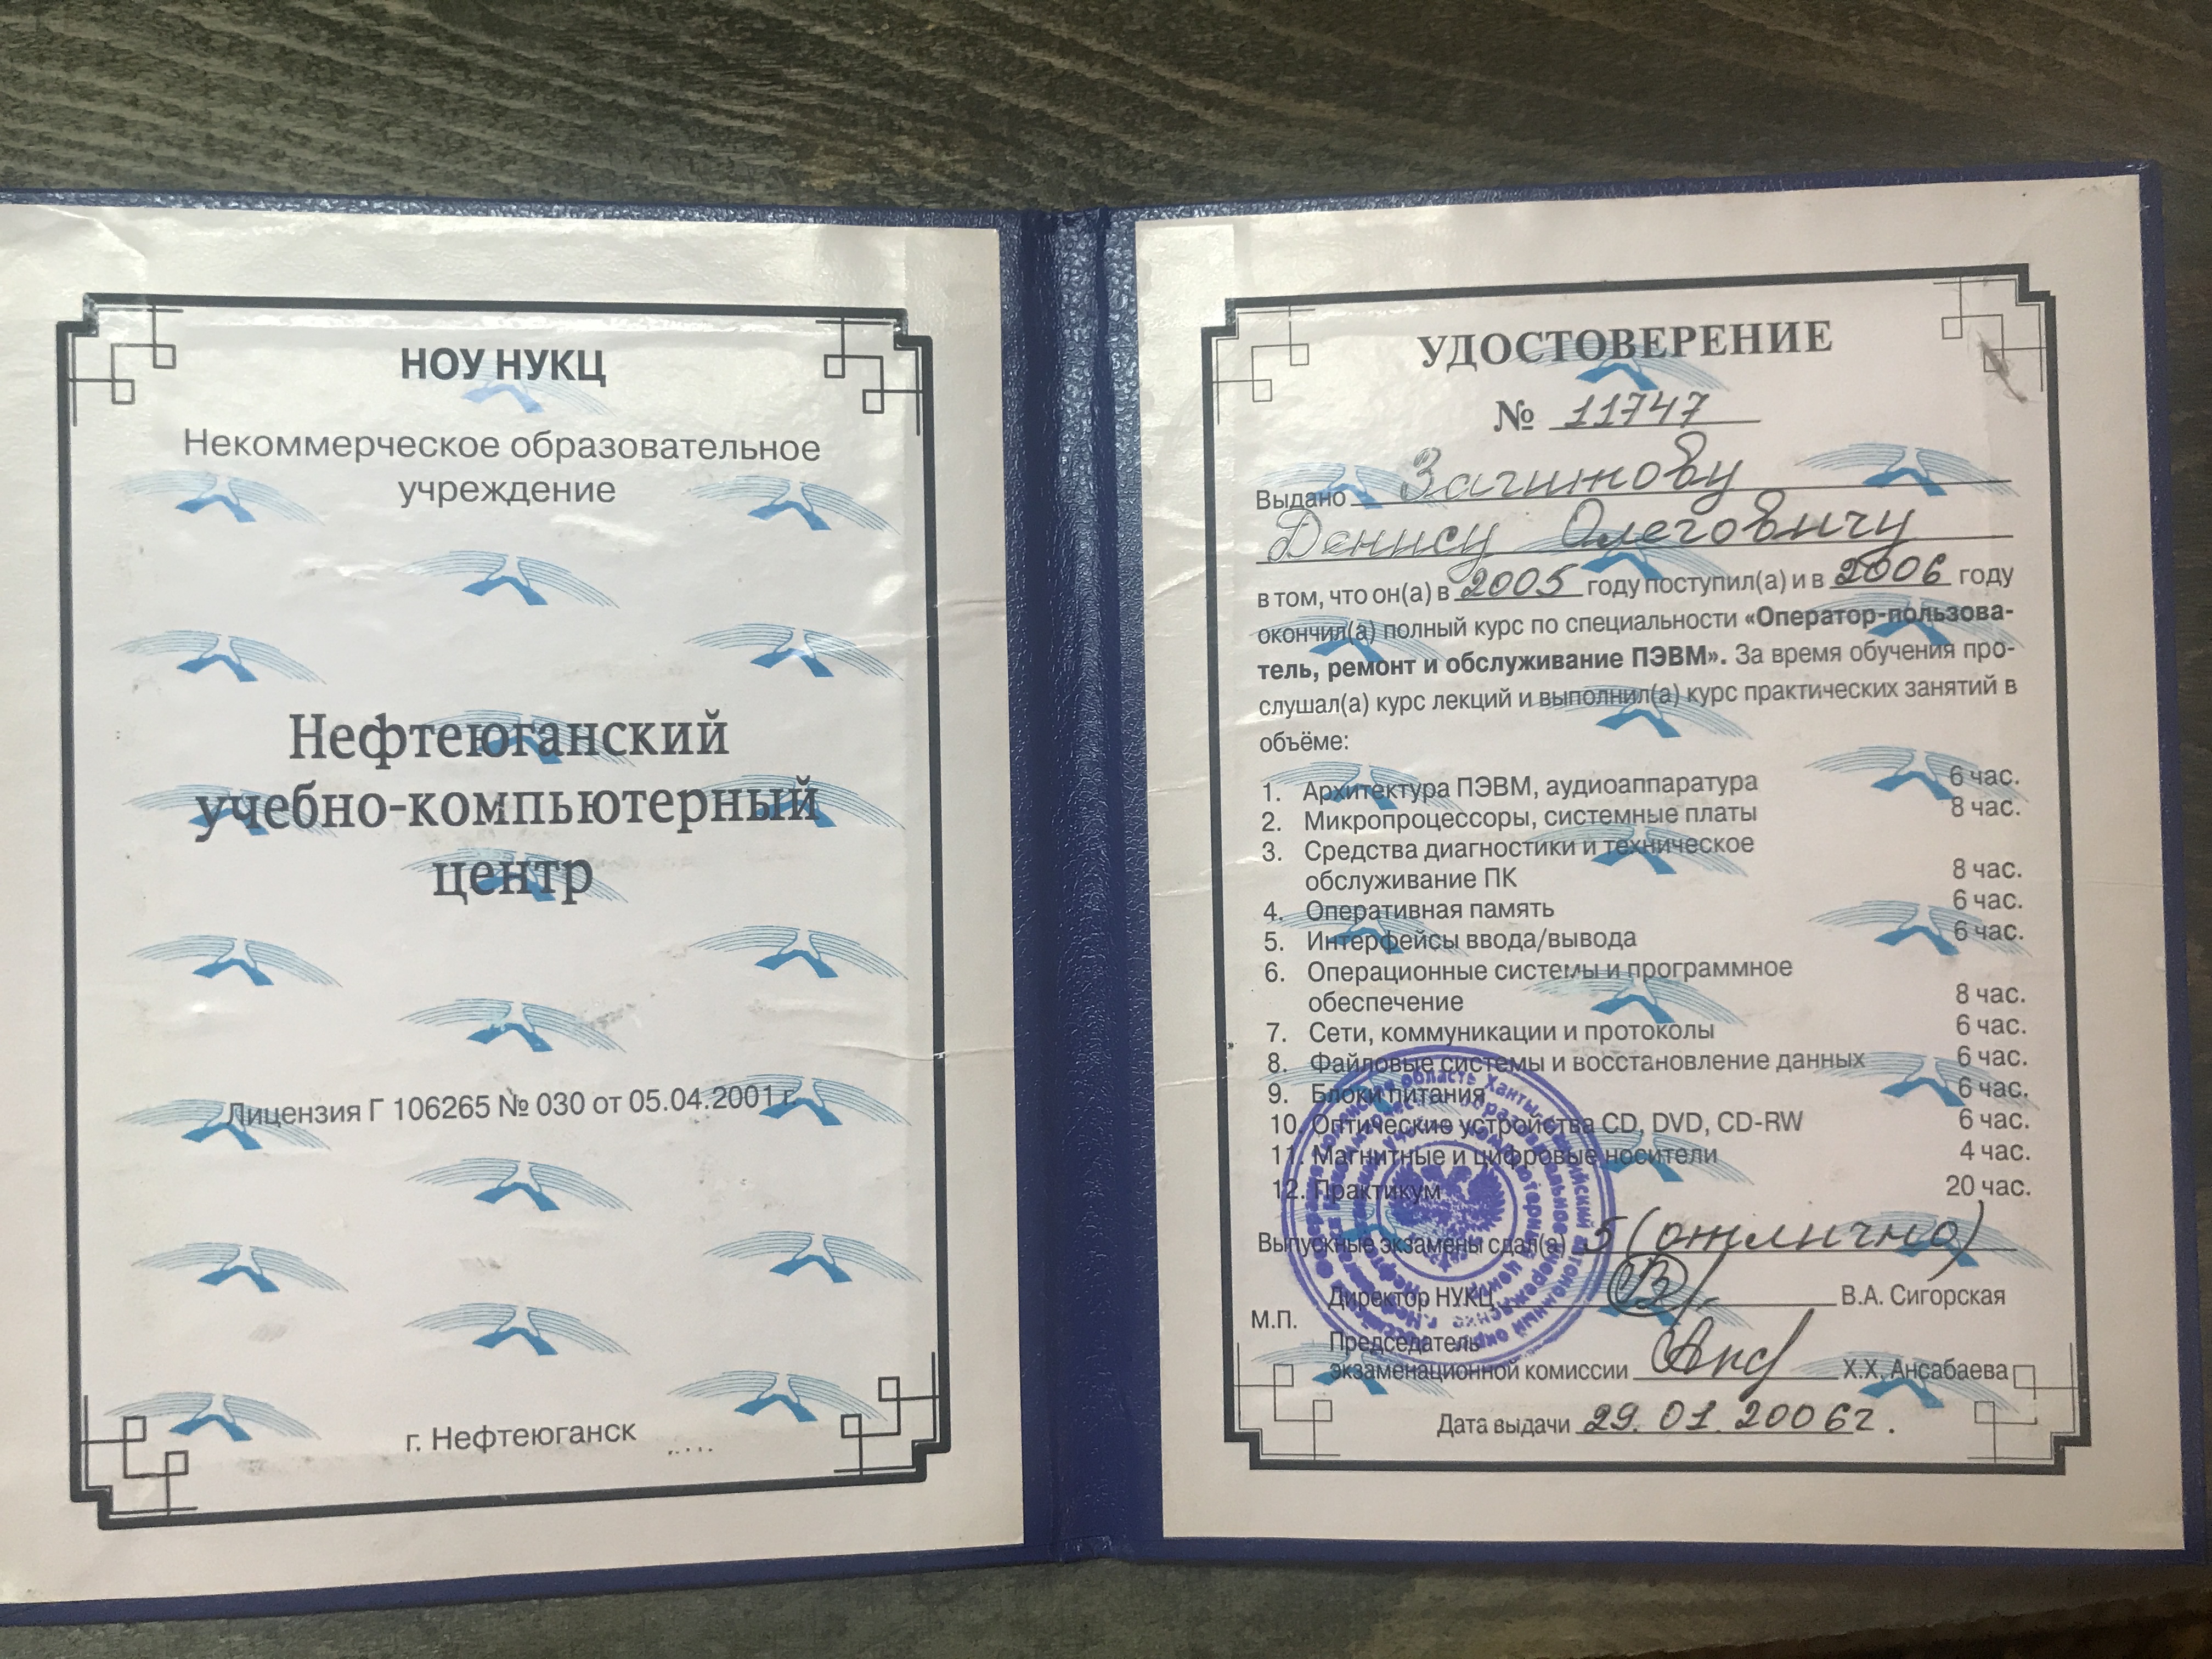 НОУ НУКЦ
Некоммерческое образовательное
учреждение
Нефтеюганский
учебно-компьютерный
центр
Лицензия Г 106265 № 030 от 05.04.2001 г.
г. Нефтеюганск
УДОСТОВЕРЕНИЕ
№ 11747
Выдано Загитову
Денису Олеговичу
в том, что он(а) в 2005 году поступил(а) и в 2006 году
окончил(а) полный курс по специальности «Оператор-пользова-
тель, ремонт и обслуживание ПЭВМ». За время обучения про-
слушал(а) курс лекций и выполнил(а) курс практических занятий в
объёме:
1. Архитектура ПЭВМ, аудиоаппаратура 6 час.
2. Микропроцессоры, системные платы 8 час.
3. Средства диагностики и техническое
обслуживание ПК 8 час.
4. Оперативная память 6 час.
5. Интерфейсы ввода/вывода 6 час.
6. Операционные системы и программное
обеспечение 8 час.
7. Сети, коммуникации и протоколы 6 час.
8. Файловые системы и восстановление данных 6 час.
9. Блоки питания 6 час.
10. Оптические устройства CD, DVD, CD-RW 6 час.
11. Магнитные и цифровые носители 4 час.
12. Практикум 20 час.
Выпускные экзамены сдал(а) 5 (отлично)
Директор НУКЦ В.А. Сигорская
М.П.
Председатель
экзаменационной комиссии Х.Х. Ансабаева
Дата выдачи 29.01.2006г.